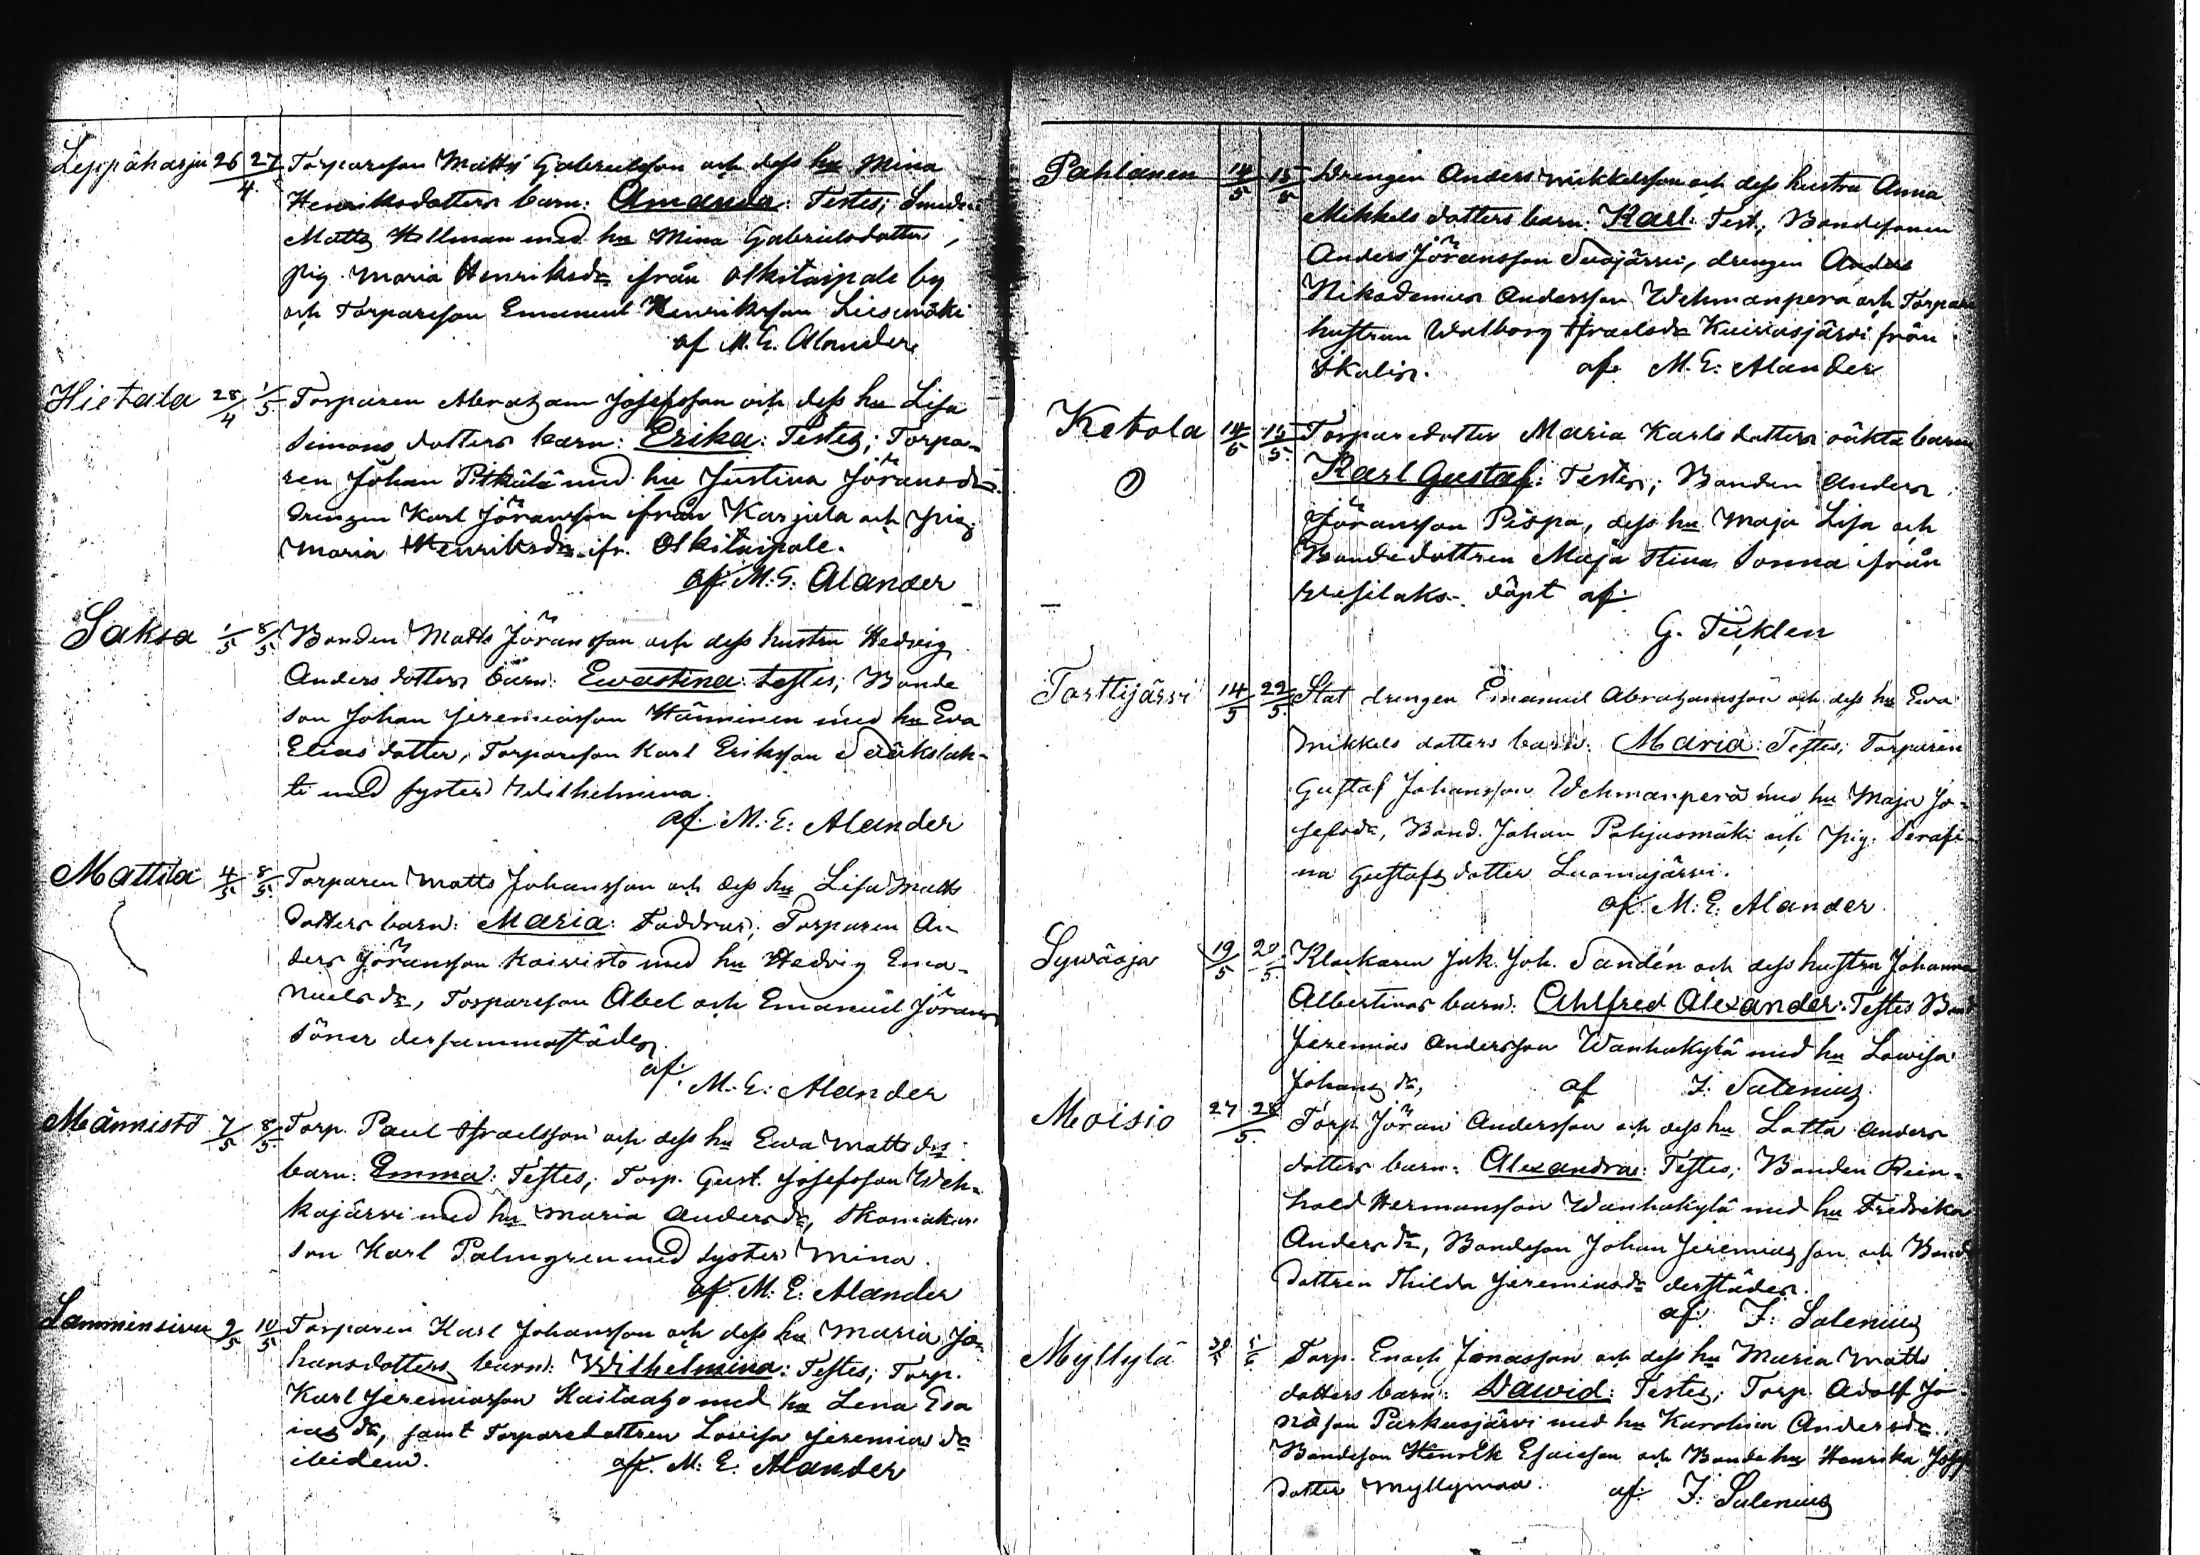 Leppäharju 26 27/4 Torpareson Matts Gabrielsson och dess hu Mina
Henriksdotters barn: Amanda: Testes; Smeden
Matts Hellman med hu Mina Gabrielsdotter,
pig. Maria Henriksdr ifrån Olkitaipale by
och Torpareson Emanuel Henriksson Liesimäki
af M. E. Alander
Hietala 28/4 1/5 Torparen Abraham Josefsson och dess hu Lisa
Simons dotters barn: Erika: Testes; Torpa-
ren Johan Pitkälä med hu Justina Jöransdr
drengen Karl Jöransson ifrån Karjula och pig.
Maria Henriksdr ifr. Olkitaipale.
af M: E: Alander
Saksa 1/5 8/5 Bonden Matts Jöransson och dess hustru Hedvig
Anders dotters barn: Ewastina: testes; Bonde
son Johan Jeremiasson Hänninen med hu Eva
Elias dotter, Torpareson Karl Eriksson
te med syster Wilhelmina.
af: M: E: Alander
Mattila 4/5 8/5 Torparen Matts Johansson och dess hu Lisa Matts
dotters barn: Maria: Faddrar; Torparen An-
ders Jöransson Koivisto med hu Hedvig Ema-
nuels dr, Torpareson Abel och Emanuel Jörans
söner dersammastädes.
af: M. E: Alander
Männistö 7/5 8/5 Torp. Paul Israelsson och dess hu Ewa Matts drs
barn: Emma: Testes, Torp. Gust. Josefsson Weh-
kajärvi med hu Maria Andersdr, Skomakar
son Karl Palmgren med syster Mina.
af. M: E: Alander
Lamminsivu 9/5 10/5 Torparen Karl Johansson och dess hu Maria Jo-
hansdotters barn: Wilhelmina: Testes; Torp.
Karl Jeremiasson Kaitaaho med hu Lena Esa
ias dr, samt Torparedottren Lovisa Jeremias dr
ibidem. af. M: E: Alander
Pahlanen 14/5 15/5 Drengen Anders Mikkelsson och dess hustru Anna
Mikkels dotters barn: Karl: Test; Bondesonen
Anders Jöransson Suojärvi, drengen Anders
Nikodemus Andersson Wehmanperä och Torpare
hustrun Walborg Israelsdr Kuivasjärvi från
Ikalis. af. M. E: Alander
Ketola 14/5 15/5 Torparedotter Maria Karls dotters oäkta barn
Karl Gustaf: Testes; Bonden Anders
Jöransson Pispa, dess hu Maja Lisa och
Bondedottren Maja Stina Sonna ifrån
Wesilaks. döpt af
G. Ticklen
Torttijärvi 14/5 22/5 Stat drengen Emanuel Abrahamsson och dess hu Ewa
Mikkels dotters barn: Maria: Testes; Torparen
Gustaf Johansson Wehmanperä med hu Maja Jo-
sefsdr, Bond. Johan Pohjasmäki och pig. Serafi-
na Gustafs dotter Luomajärvi.
af. M: E: Alander
Sywäoja 19/5 20/5 Klockaren Jak. Joh. Sandén och dess hustru Johanna
Albertinas barn: Ahlfred Alexander: Testes Bond
Jeremias Andersson Wanhakylä med hu Lowisa
Johans dr, af F. Salenius
Moisio 27 28/5 Torp. Jöran Andersson och dess hu Lotta Anders
dotters barn: Alexandra: Testes; Bonden Rein-
hold Hermansson Wanhakylä med hu Fredrika
Anders dr, Bondeson Johan Jeremias son och Bond
dottren Thilda Jeremiasdr derstädes.
af: F: Salenius
Myllylä Torp. Enoch Jonasson och dess hu Maria Matts
dotters barn: Dawid: Testes; Torp. Adolf Jo-
nason Parkusjärvi med hu Karolina Andersdr.
Bondeson Henrik Esaiesson och Bonde hu Henrika Josefs
dotter Myllymaa. af. F. Salenius